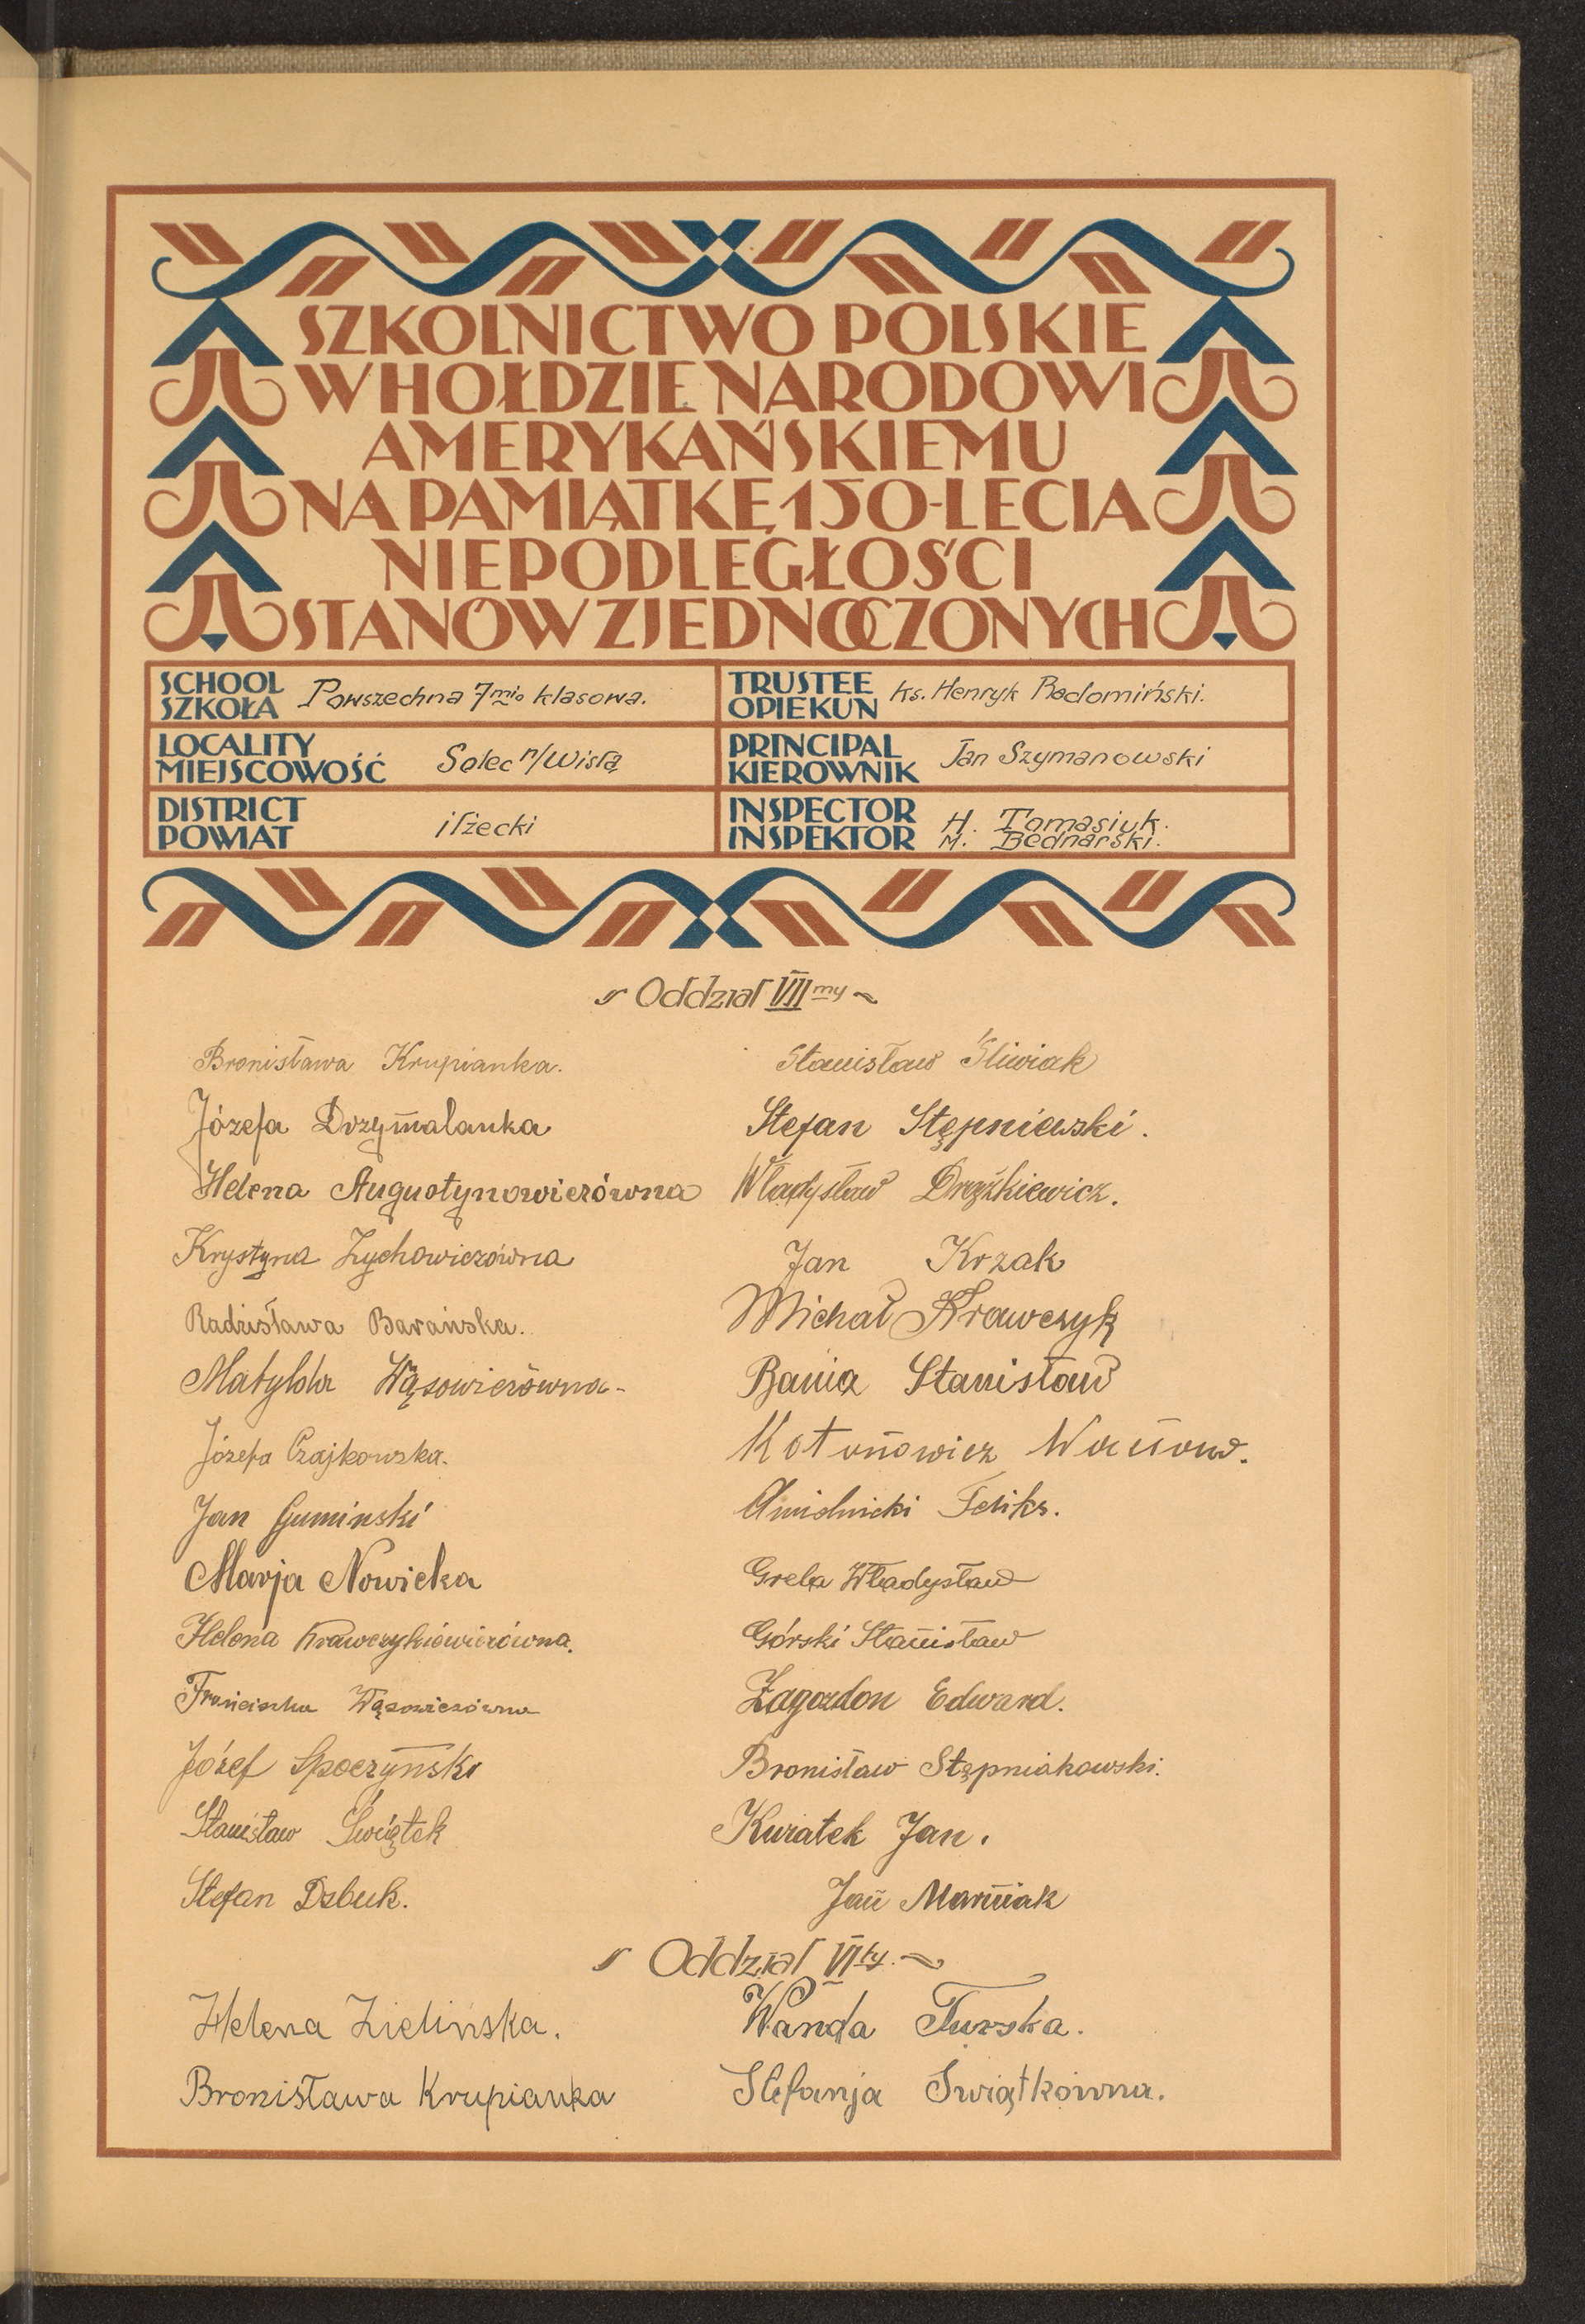 SZKOLNICTWO POLSKIE
W HOŁDZIE NARODOWI
AMERYKAŃSKIEMU
NA PAMIĄTKĘ 150-LECIA
NIEPODLEGŁOŚCI
STANÓW ZJEDNOCZONYCH
SCHOOL
SZKOŁA
Powszechna 7mio klasowa.
TRUSTEE
OPIEKUN
ks. Henryk Radomiński.
LOCALITY
MIEJSCOWOŚĆ
Solec n/Wisłą
PRINCIPAL
KIEROWNIK
Jan Szymanowski
DISTRICT
POWIAT
iłżecki
INSPECTOR
INSPEKTOR
H. Tomasiuk.
M. Bednarski.
Oddział VIImy
Bronisława Krupianka.
Józefa Drzymalanka
Helena Augustynowiczówna
Krystyna Zychowiczówna
Radzisława Barańska.
Matylda Wąsowiczówna-
Józefa Czajkowska.
Jan Gumiński
Marja Nowicka
Helena Krawczykiewiczówna.
Franciszka Wąsowiczówna
Józef Spoczyński
Stanisław Świątek
Stefan Dębuk.
Stanisław Śliwiak
Stefan Stępniewski.
Władysław Drążkiewicz.
Jan Krzak
Michał Krawczyk
Bania Stanisław
Wacław.
Feliks.
Grela Władysław
Górski Stanisław
Zagozdon Edward.
Bronisław Stępniakowski.
Kwiatek Jan.
Jan Marniak
Oddział VIty.
Helena Zielińska.
Bronisława Krupianka
Wanda Turska.
Stefanja Świątkówna.